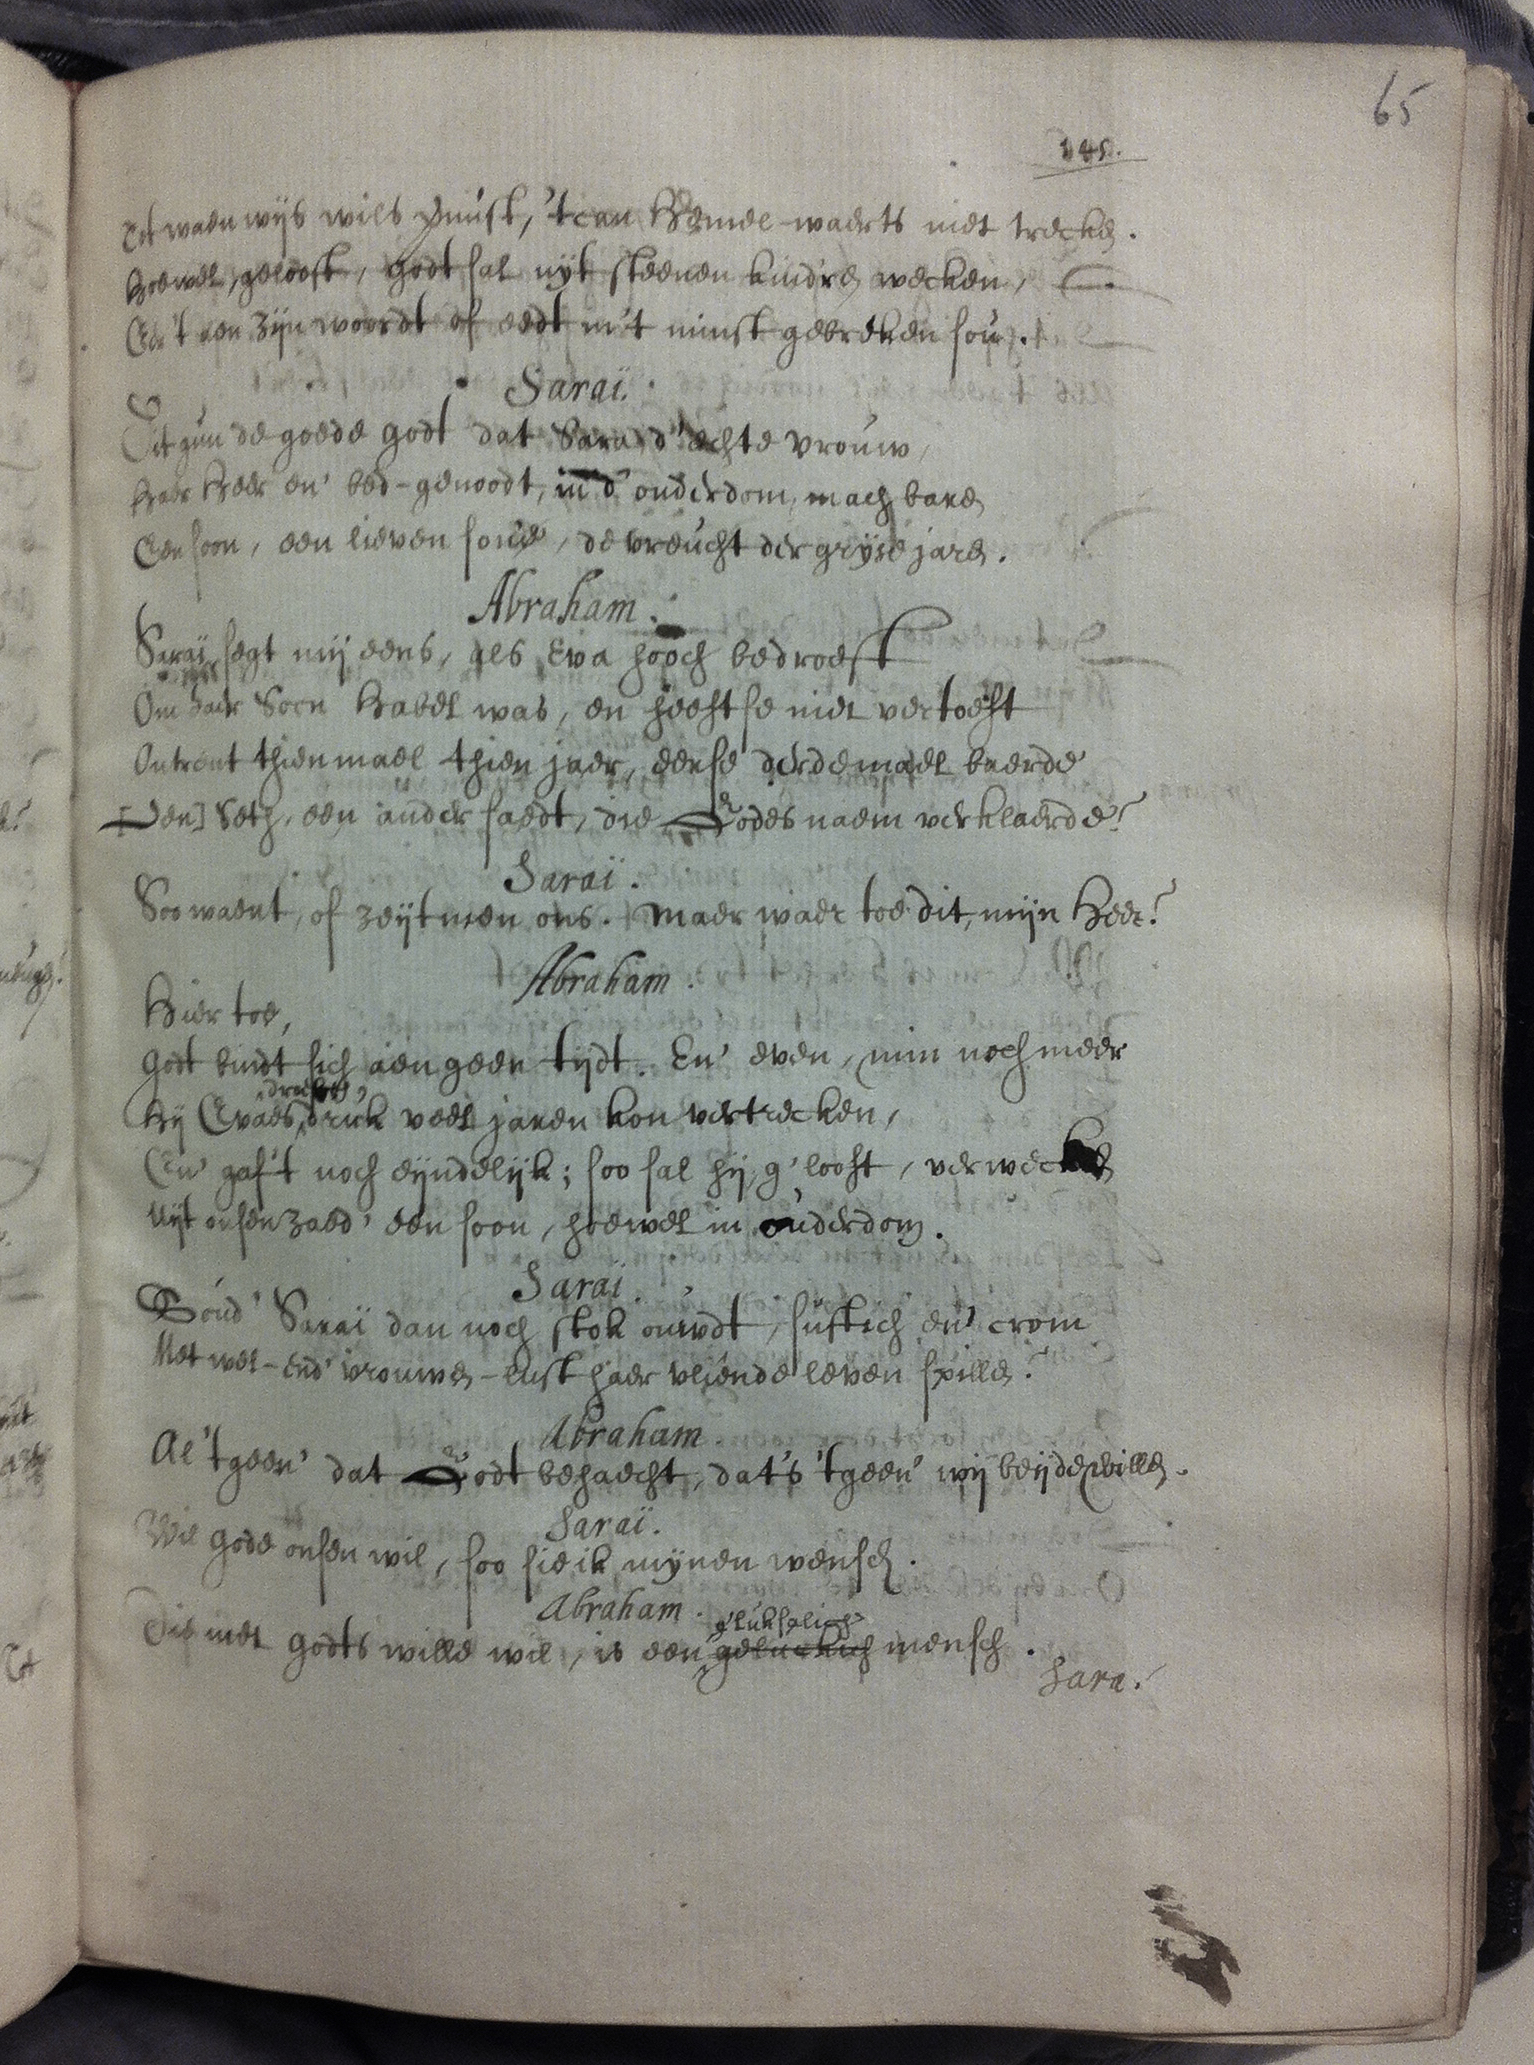 65
145.
waenwijs wils gunst, 't can Hemel-waerts niet trecken.
Hoewel, gelooft, Godt sal uyt steenen kindren wecken,
Eer 't aen zijn woordt of eedt in 't minst gebreken sou.
Saraï.
Dit gun de goede Godt dat Sara d' echte vrouw,
Haer Heer en' bed-genoodt, in d' ouderdom, mach baren
Een soon, een lieven sone, de vreucht der grijse jaren.
Abraham.
Saraï segt mij eens, als Eva hooch bedroeft
Om haer Soon Habel was, en heeft se niet vertoeft
Ontrent thienmael thien jaer, eer se derdemael baerde
[Den] Seth, een ander saedt, die Godes naem verklaerde?
Saraï.
Soo waent, of zeijt men ons. Maer waer toe dit, mijn Heer?
Abraham.
Hier toe,
Godt bindt sich aen geen tijdt. En' even, min noch meer
Hij Evaes druk veel jaren kon vertrecken,
En' gaf't noch eijndelijk; soo sal hij, g'looft, verwecken
Uijt onsen zaed' een soon, hoewel in ouderdom.
Saraï.
Soud' Saraï dan noch stok ouwdt, suftich en' crom
Met wel-end' vrouwen-lust haer vliende leven spillen?
Abraham
Al 't geen' dat Godt behaecht, dat's 't geen' wij beijde willen.
Saraï.
Wil Gode onsen wil, soo sie ik mijnen wensch.
Abraham.
g'lukselich
Die met Godts wille wil, is een geluckich mensch.
Sara.